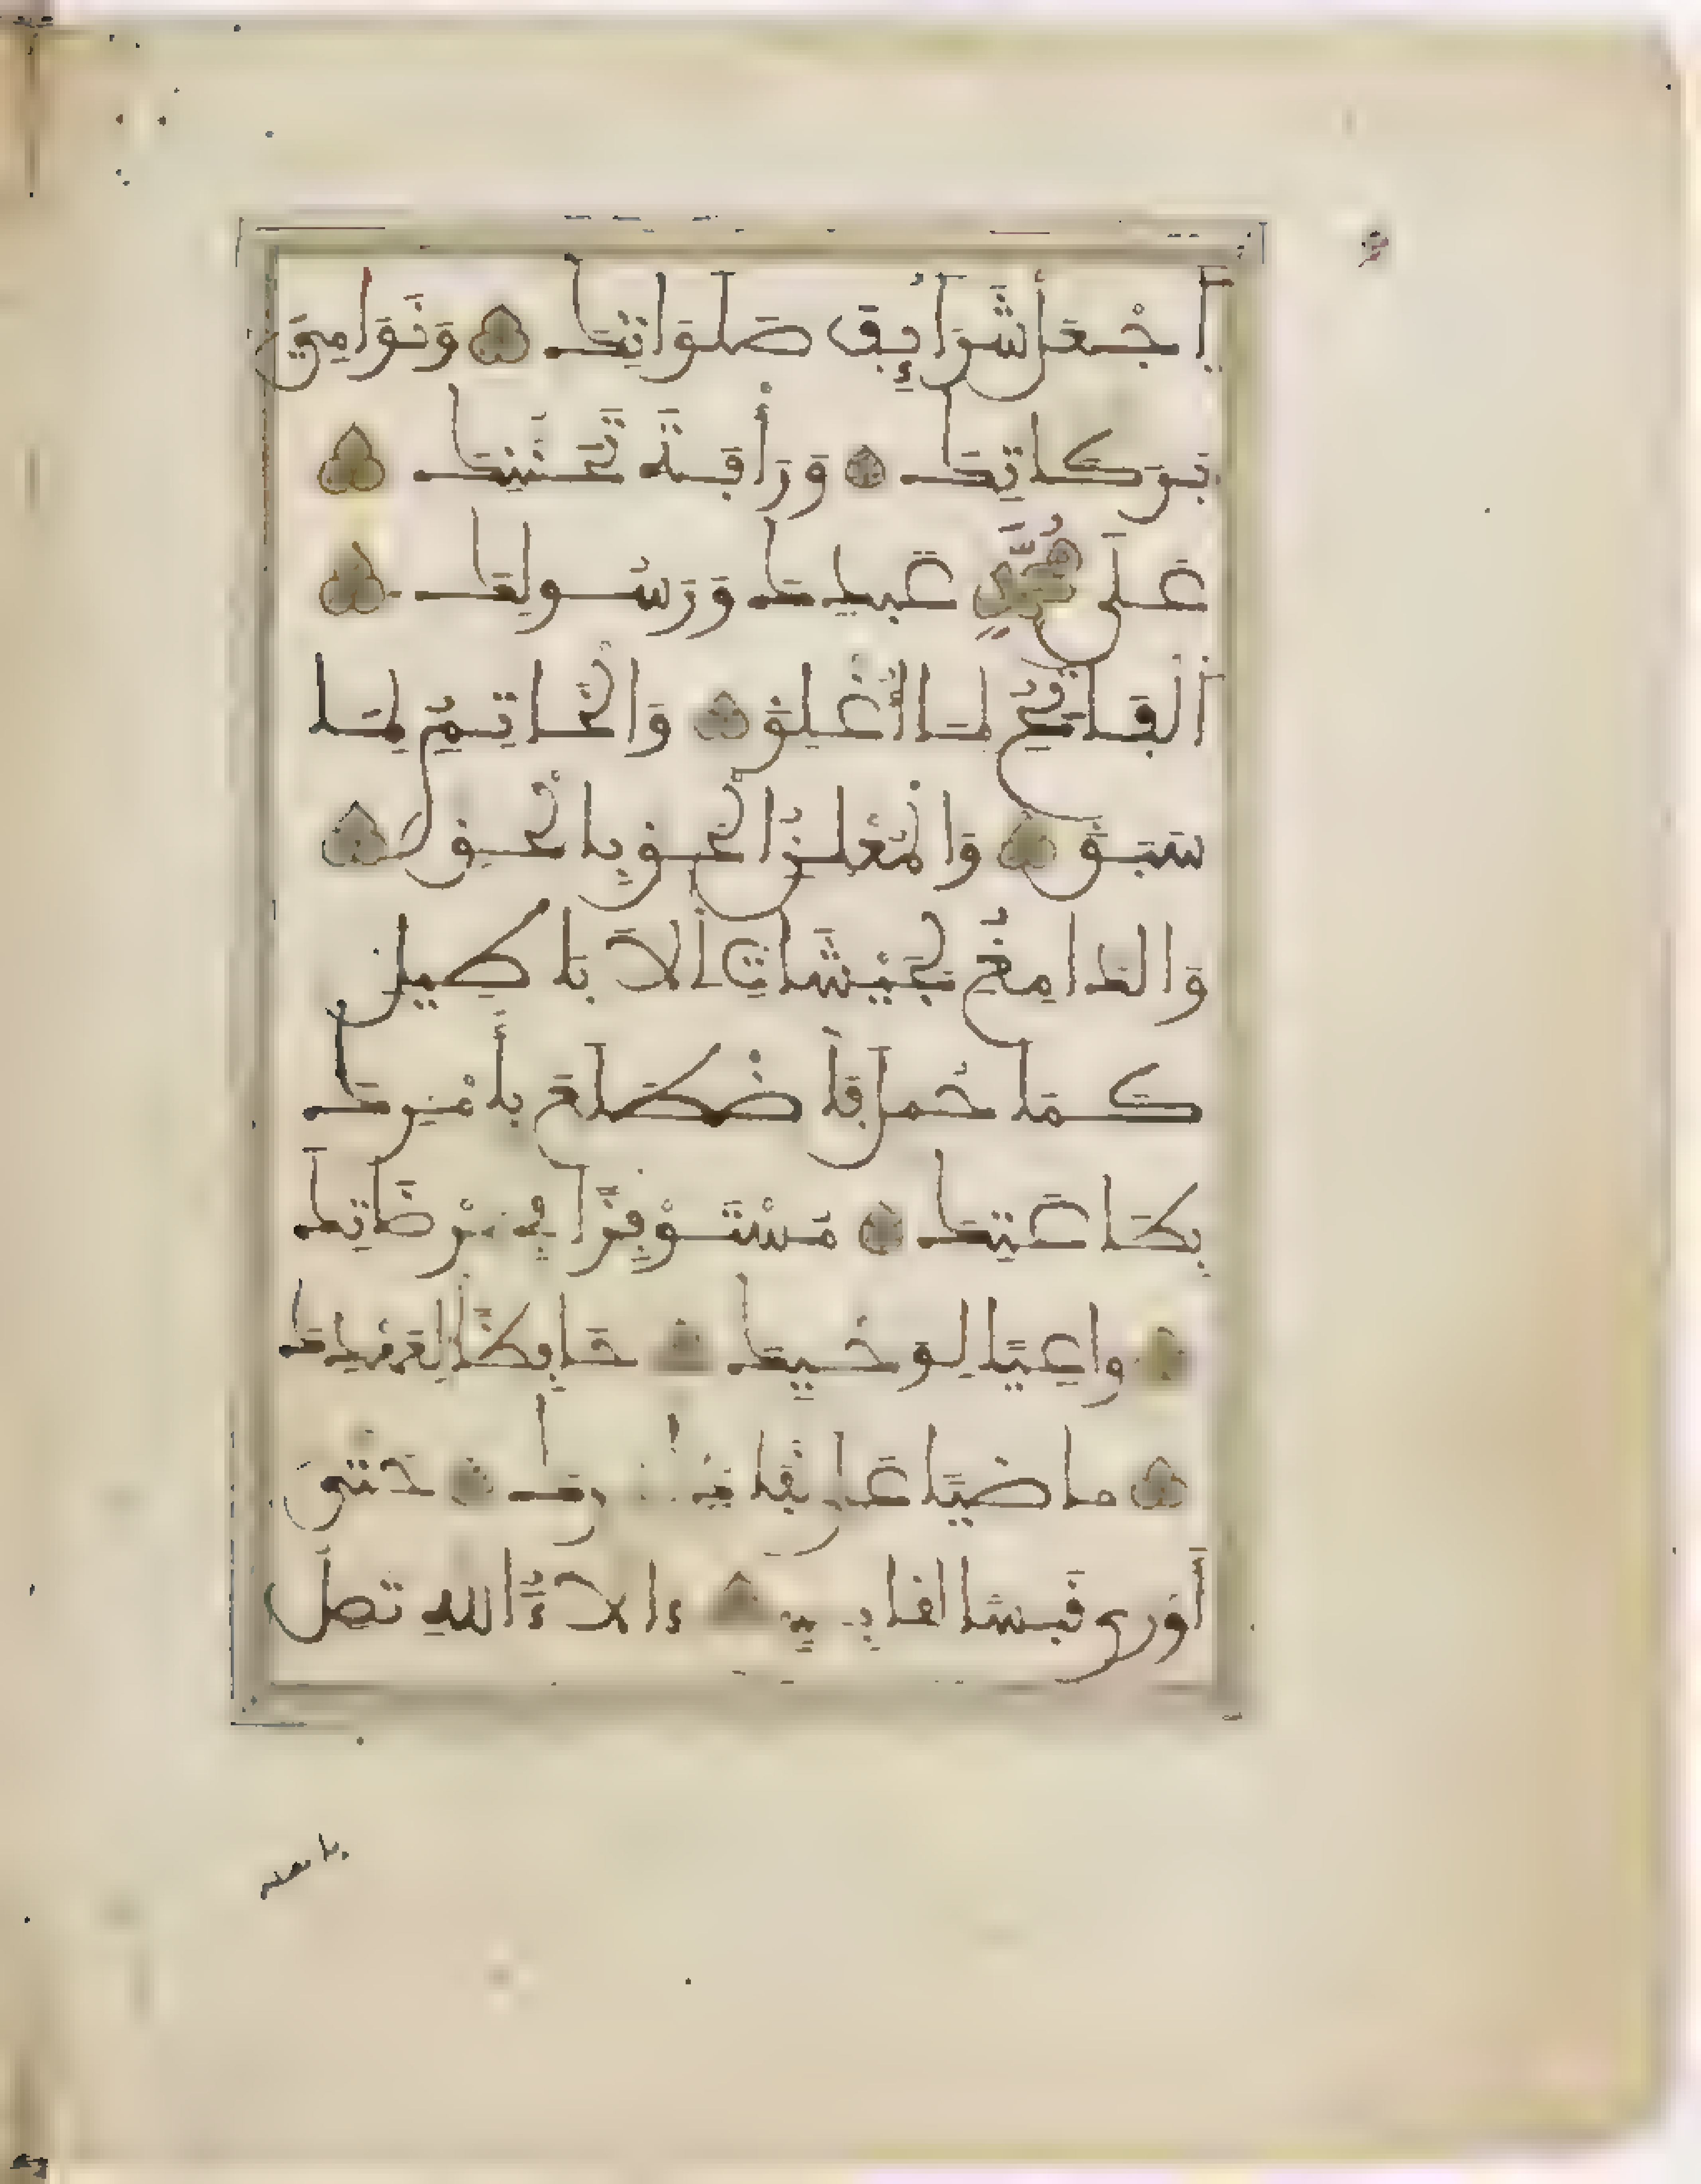 اجْعَلْ شَرَائِفَ صَلَوَاتِكَ وَنَوَامِيَ
بَرَكَاتِكَ وَرَأْفَةَ تَحَنُّنِكَ
عَلَى مُحَمَّدٍ عَبْدِكَ وَرَسُولِكَ
الْفَاتِحِ لِمَا أُغْلِقَ وَالْخَاتِمِ لِمَا
سَبَقَ وَالْمُعْلِنِ الْحَقَّ بِالْحَقِّ
وَالدَّامِغِ لِجَيْشَاتِ الْأَبَاطِيلِ
كَمَا حُمِّلَ فَاضْطَلَعَ بِأَمْرِكَ
بِطَاعَتِكَ مُسْتَوْفِزًا فِي مَرْضَاتِكَ
وَاعِيًا لِوَحْيِكَ حَافِظًا لِعَهْدِكَ
مَاضِيًا عَلَى نَفَاذِ أَمْرِكَ حَتَّى
أَوْرَى قَبَسًا لِقَابِسٍ ءَالَاءُ اللهِ تَصِلُ
بأهله